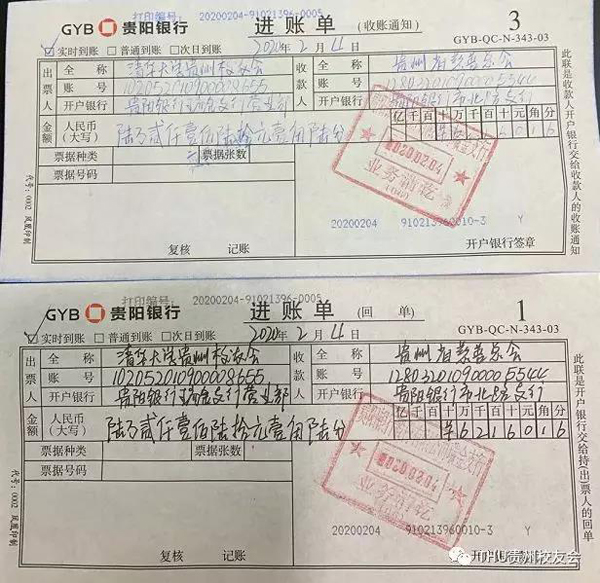 打印编号: 20200204-91021396-0005
GYB 贵阳银行 进账单 (收账通知) 3
GYB-QC-N-343-03
实时到账 普通到账 次日到账 2020年 2月 4日
出票人 全称 清华大学贵州校友会 收款人 全称 贵州省慈善总会
账号 10205201090008655 账号 12803201090005544
开户银行 开户银行
金额 人民币(大写) 陆万贰仟壹佰陆拾元壹角陆分 亿千百十万千百十元角分
票据种类 票据张数
票据号码
2020.02.04
业务办讫
20200204 910213960010-3 Y
复核 记账 开户银行签章
此联是收款人开户银行交给收款人的收账通知
代号: 0002 凤凰印制
打印编号: 20200204-91021396-0005
GYB 贵阳银行 进账单 (回单) 1
GYB-QC-N-343-03
实时到账 普通到账 次日到账 2020年 2月 4日
出票人 全称 清华大学贵州校友会 收款人 全称 贵州省慈善总会
账号 账号
开户银行 开户银行
金额 人民币(大写) 陆万贰仟壹佰陆拾元壹角陆分 亿千百十万千百十元角分
¥6216016
票据种类 票据张数
票据号码
2020.02.04
业务办讫
20200204 910213960010-3 Y
复核 记账
此联是开户银行交给持(出)票人的回单
代号: 0002 凤凰印制
THU贵州校友会